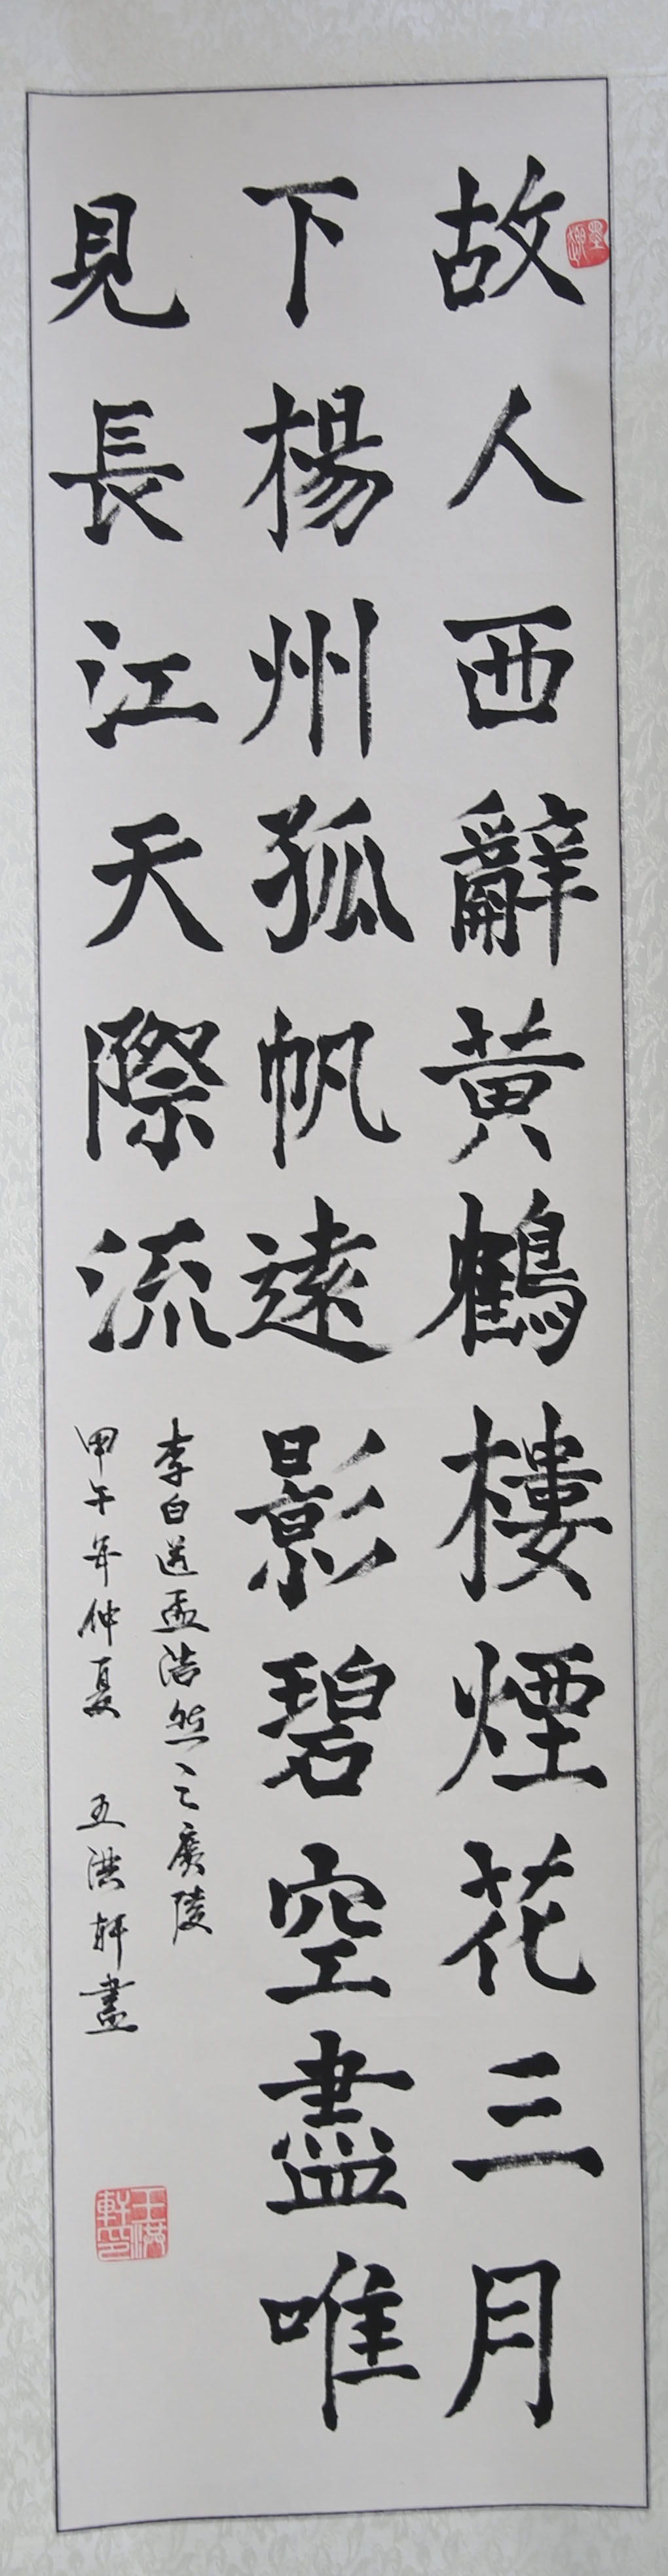 故人西辭黃鶴樓煙花三月
下楊州孤帆遠影碧空盡唯
見長江天際流
李白送孟浩然之廣陵
甲午年仲夏 王洪軒書
王洪軒印